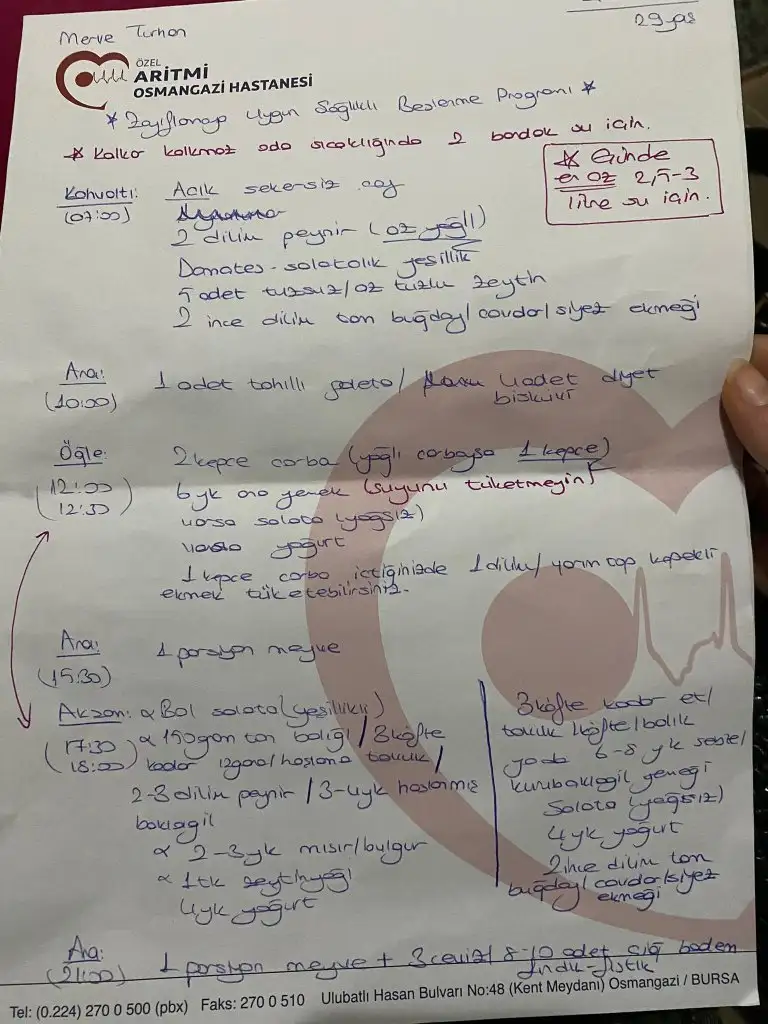 29 yaş
Merve Turhan
ÖZEL
ARİTMİ
OSMANGAZİ HASTANESİ
* Zayıflamaya Uygun Sağlıklı Beslenme Programı *
* Kalkar kalkmaz oda sıcaklığında 2 bardak su için.
* Günde
en az 2,5-3
litre su için.
Kahvaltı: Açık şekersiz çay
(07:00)
2 dilim peynir (az yağlı)
Domates-salatalık yeşillik
5 adet tuzsuz/az tuzlu zeytin
2 ince dilim tam buğday/çavdar/siyez ekmeği
Ara: 1 adet tahıllı galeta/ 4 adet diyet
(10:00) bisküvi
Öğle: 2 kepçe çorba (yağlı çorbaysa 1 kepçe)
(12:00 6 yk ana yemek (suyunu tüketmeyin)
12:30) varsa salata (yağsız)
varsa yoğurt
1 kepçe çorba içtiğinizde 1 dilim/ yarım cap kepekli
ekmek tüketebilirsiniz.
Ara: 1 porsiyon meyve
(15:30)
Akşam: α Bol salata (yeşillikli)
(17:30 α 150 gram ton balığı / 3 köfte
18:00) kadar ızgara/haşlama tavuk/
2-3 dilim peynir / 3-4 yk haşlanmış
baklagil
α 2-3 yk mısır/bulgur
α 1 tk zeytinyağı
4 yk yoğurt
3 köfte kadar et/
tavuk/köfte/balık
yada 6-8 yk sebze/
kurubaklagil yemeği
Salata (yağsız)
4 yk yoğurt
2 ince dilim tam
buğday/çavdar/siyez
ekmeği
Ara: 1 porsiyon meyve + 3 ceviz/ 8-10 adet çiğ badem
(21:00) fındık-fıstık
Tel: (0.224) 270 0 500 (pbx) Faks: 270 0 510 Ulubatlı Hasan Bulvarı No:48 (Kent Meydanı) Osmangazi / BURSA